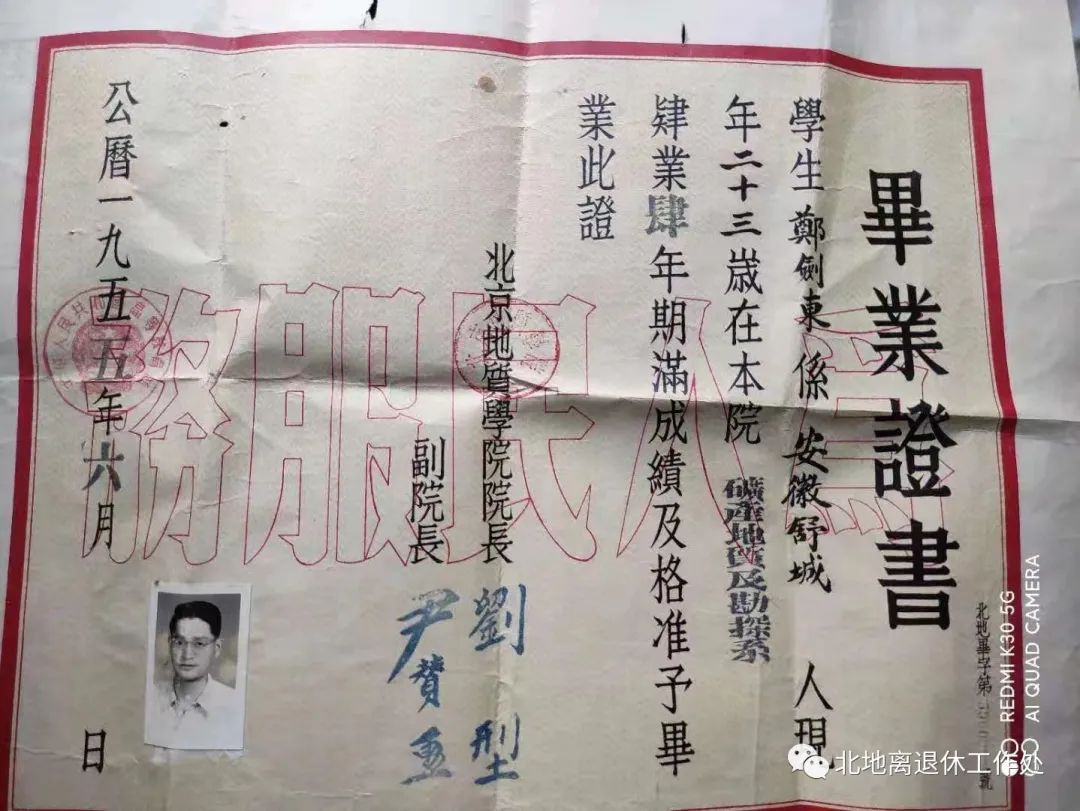 畢業證書
北地畢字第
學生鄭劍東係安徽舒城人現
年二十三歲在本院礦產地質及勘探系
肄業肆年期滿成績及格准予畢
業此證
北京地質學院院長劉型
副院長尹贊勳
公曆一九五五年六月日
為人民服務
REDMI K30 5G
AI QUAD CAMERA
北地离退休工作处